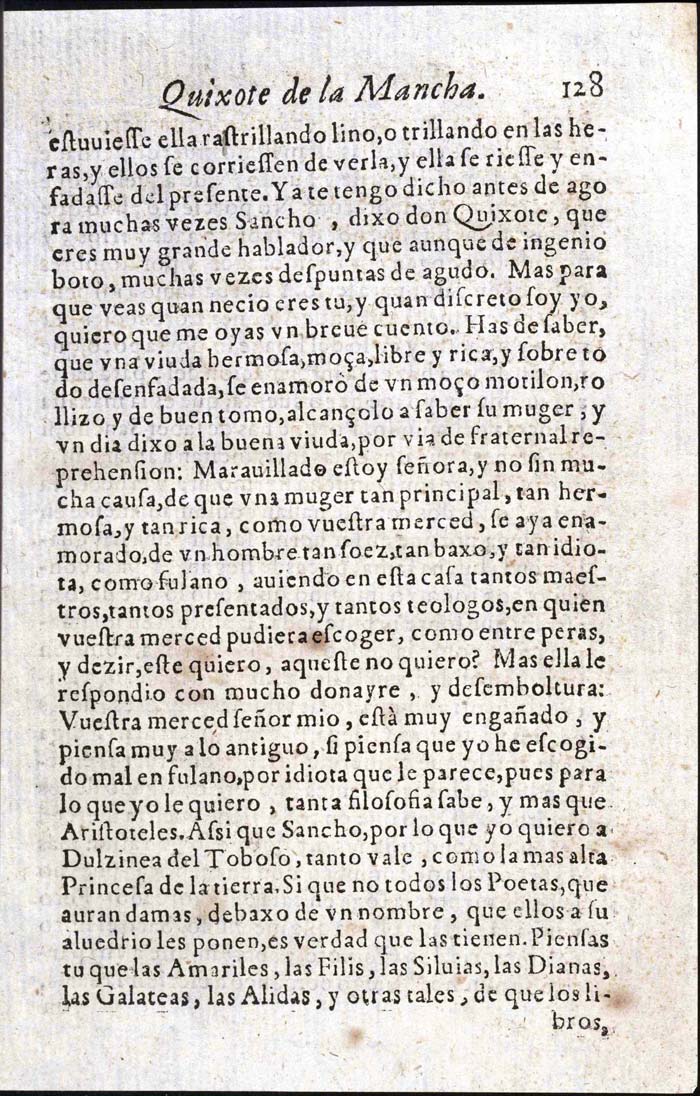 Quixote de la Mancha. 128
eſtuuieſſe ella raſtrillando lino, o trillando en las he-
ras, y ellos ſe corrieſſen de verla, y ella ſe rieſſe y en-
fadaſſe del preſente. Ya te tengo dicho antes de ago
ra muchas vezes Sancho, dixo don Quixote, que
eres muy grande hablador, y que aunque de ingenio
boto, muchas vezes deſpuntas de agudo. Mas para
que veas quan necio eres tu, y quan diſcreto ſoy yo,
quiero que me oyas vn breue cuento. Has de ſaber,
que vna viuda hermoſa, moça, libre y rica, y ſobre to
do deſenfadada, ſe enamorò de vn moço motilon, ro
llizo y de buen tomo, alcançolo a ſaber ſu muger, y
vn dia dixo a la buena viuda, por via de fraternal re-
prehenſion: Marauillado eſtoy ſeñora, y no ſin mu-
cha cauſa, de que vna muger tan principal, tan her-
moſa, y tan rica, como vueſtra merced, ſe aya ena-
morado, de vn hombre tan ſoez, tan baxo, y tan idio-
ta, como fulano, auiendo en eſta caſa tantos maeſ-
tros, tantos preſentados, y tantos teologos, en quien
vueſtra merced pudiera eſcoger, como entre peras,
y dezir, eſte quiero, aqueſte no quiero? Mas ella le
reſpondio con mucho donayre, y deſemboltura:
Vueſtra merced ſeñor mio, eſtà muy engañado, y
pienſa muy a lo antiguo, ſi pienſa que yo he eſcogi-
do mal en fulano, por idiota que le parece, pues para
lo que yo le quiero, tanta filoſofia ſabe, y mas que
Ariſtoteles. Aſsi que Sancho, por lo que yo quiero a
Dulzinea del Toboſo, tanto vale, como la mas alta
Princeſa de la tierra. Si que no todos los Poetas, que
auran damas, debaxo de vn nombre, que ellos a ſu
aluedrio les ponen, es verdad que las tienen. Pienſas
tu que las Amariles, las Filis, las Siluias, las Dianas,
las Galateas, las Alidas, y otras tales, de que los li-
bros,